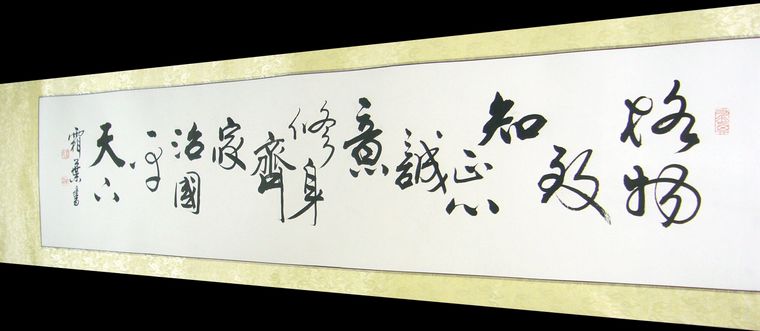 格物
致
知
正心
誠
意
修身
齊
家
治國
平
天下
霜葉書